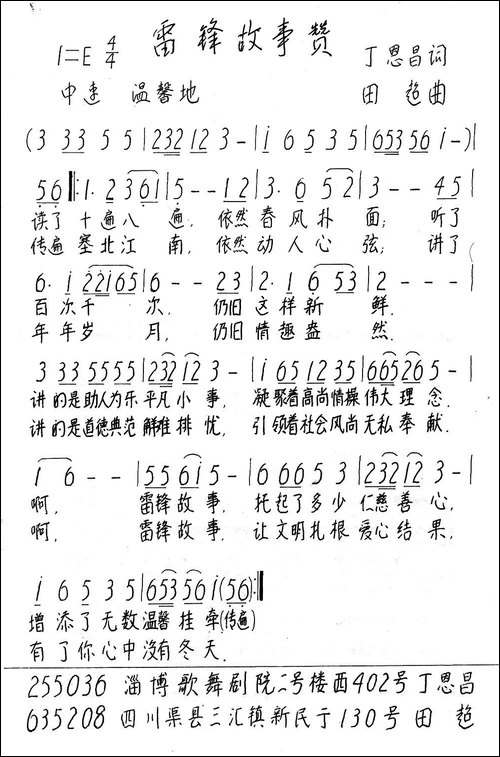 雷锋故事赞
1=E 4/4
丁恩昌词
中速 温馨地
田 超曲
(3 33 5 5|232 12 3-|i 6 5 3 5|653 56 i-)|
56‖:1· 2 361|5--12|3· 6 52|3--45|
读了十遍八遍, 依然春风扑面; 听了
传遍塞北江南, 依然动人心弦; 讲了
6· i 22165|6--23|2· 1 6 53|2---|
百次千次, 仍旧这样新鲜.
年年岁月, 仍旧情趣盎然.
3 33 55 55|232 12 3-|i 65 12 35|665 26 5-|
讲的是助人为乐平凡小事, 凝聚着高尚情操伟大理念.
讲的是道德典范解难排忧, 引领着社会风尚无私奉献.
i 6--|55 6i 5-|6 66 5 3|232 12 3-|
啊, 雷锋故事, 托起了多少仁慈善心,
啊, 雷锋故事, 让文明扎根爱心结果,
i 6 5 3 5|653 56 i(56):‖
增添了无数温馨挂牵(传遍)
有了你心中没有冬天.
255036 淄博歌舞剧院二号楼西402号丁恩昌
635208 四川渠县三汇镇新民于130号 田 超